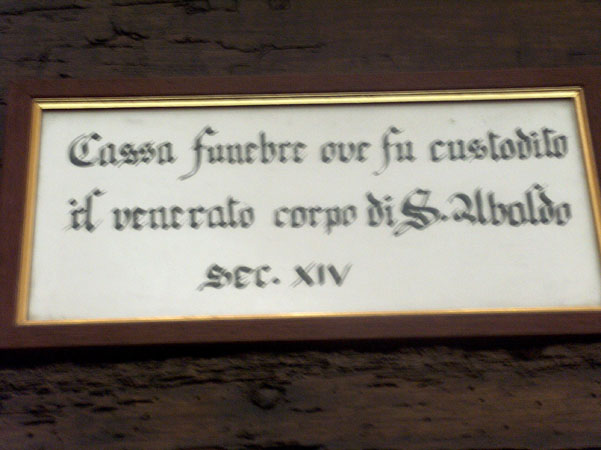 Cassa funebre ove fu custodito
il venerato corpo di S. Ubaldo
SEC. XIV